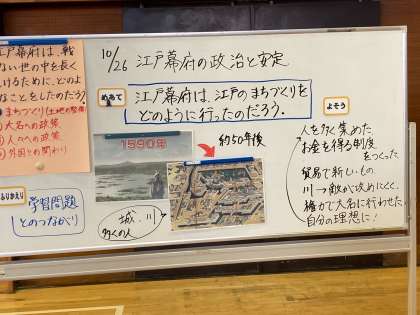 10/26 江戸幕府の政治と安定
江戸幕府は、戦
ない世の中を長く
けるために、どのよ
なことをしたのだろう。
まちづくり(土地の整備)
大名への政策
人々への政策
外国との関わり
めあて
江戸幕府は、江戸のまちづくりを
どのように行ったのだろう。
よそう
人を多く集めた
お金を得る制度
をつくった。
貿易で新しいもの
川→敵が攻めにくく、
権力で大名に行わせた。
自分の理想に!
1590年
約50年後
城、川
多くの人
ふりかえり
学習問題
とのつながり